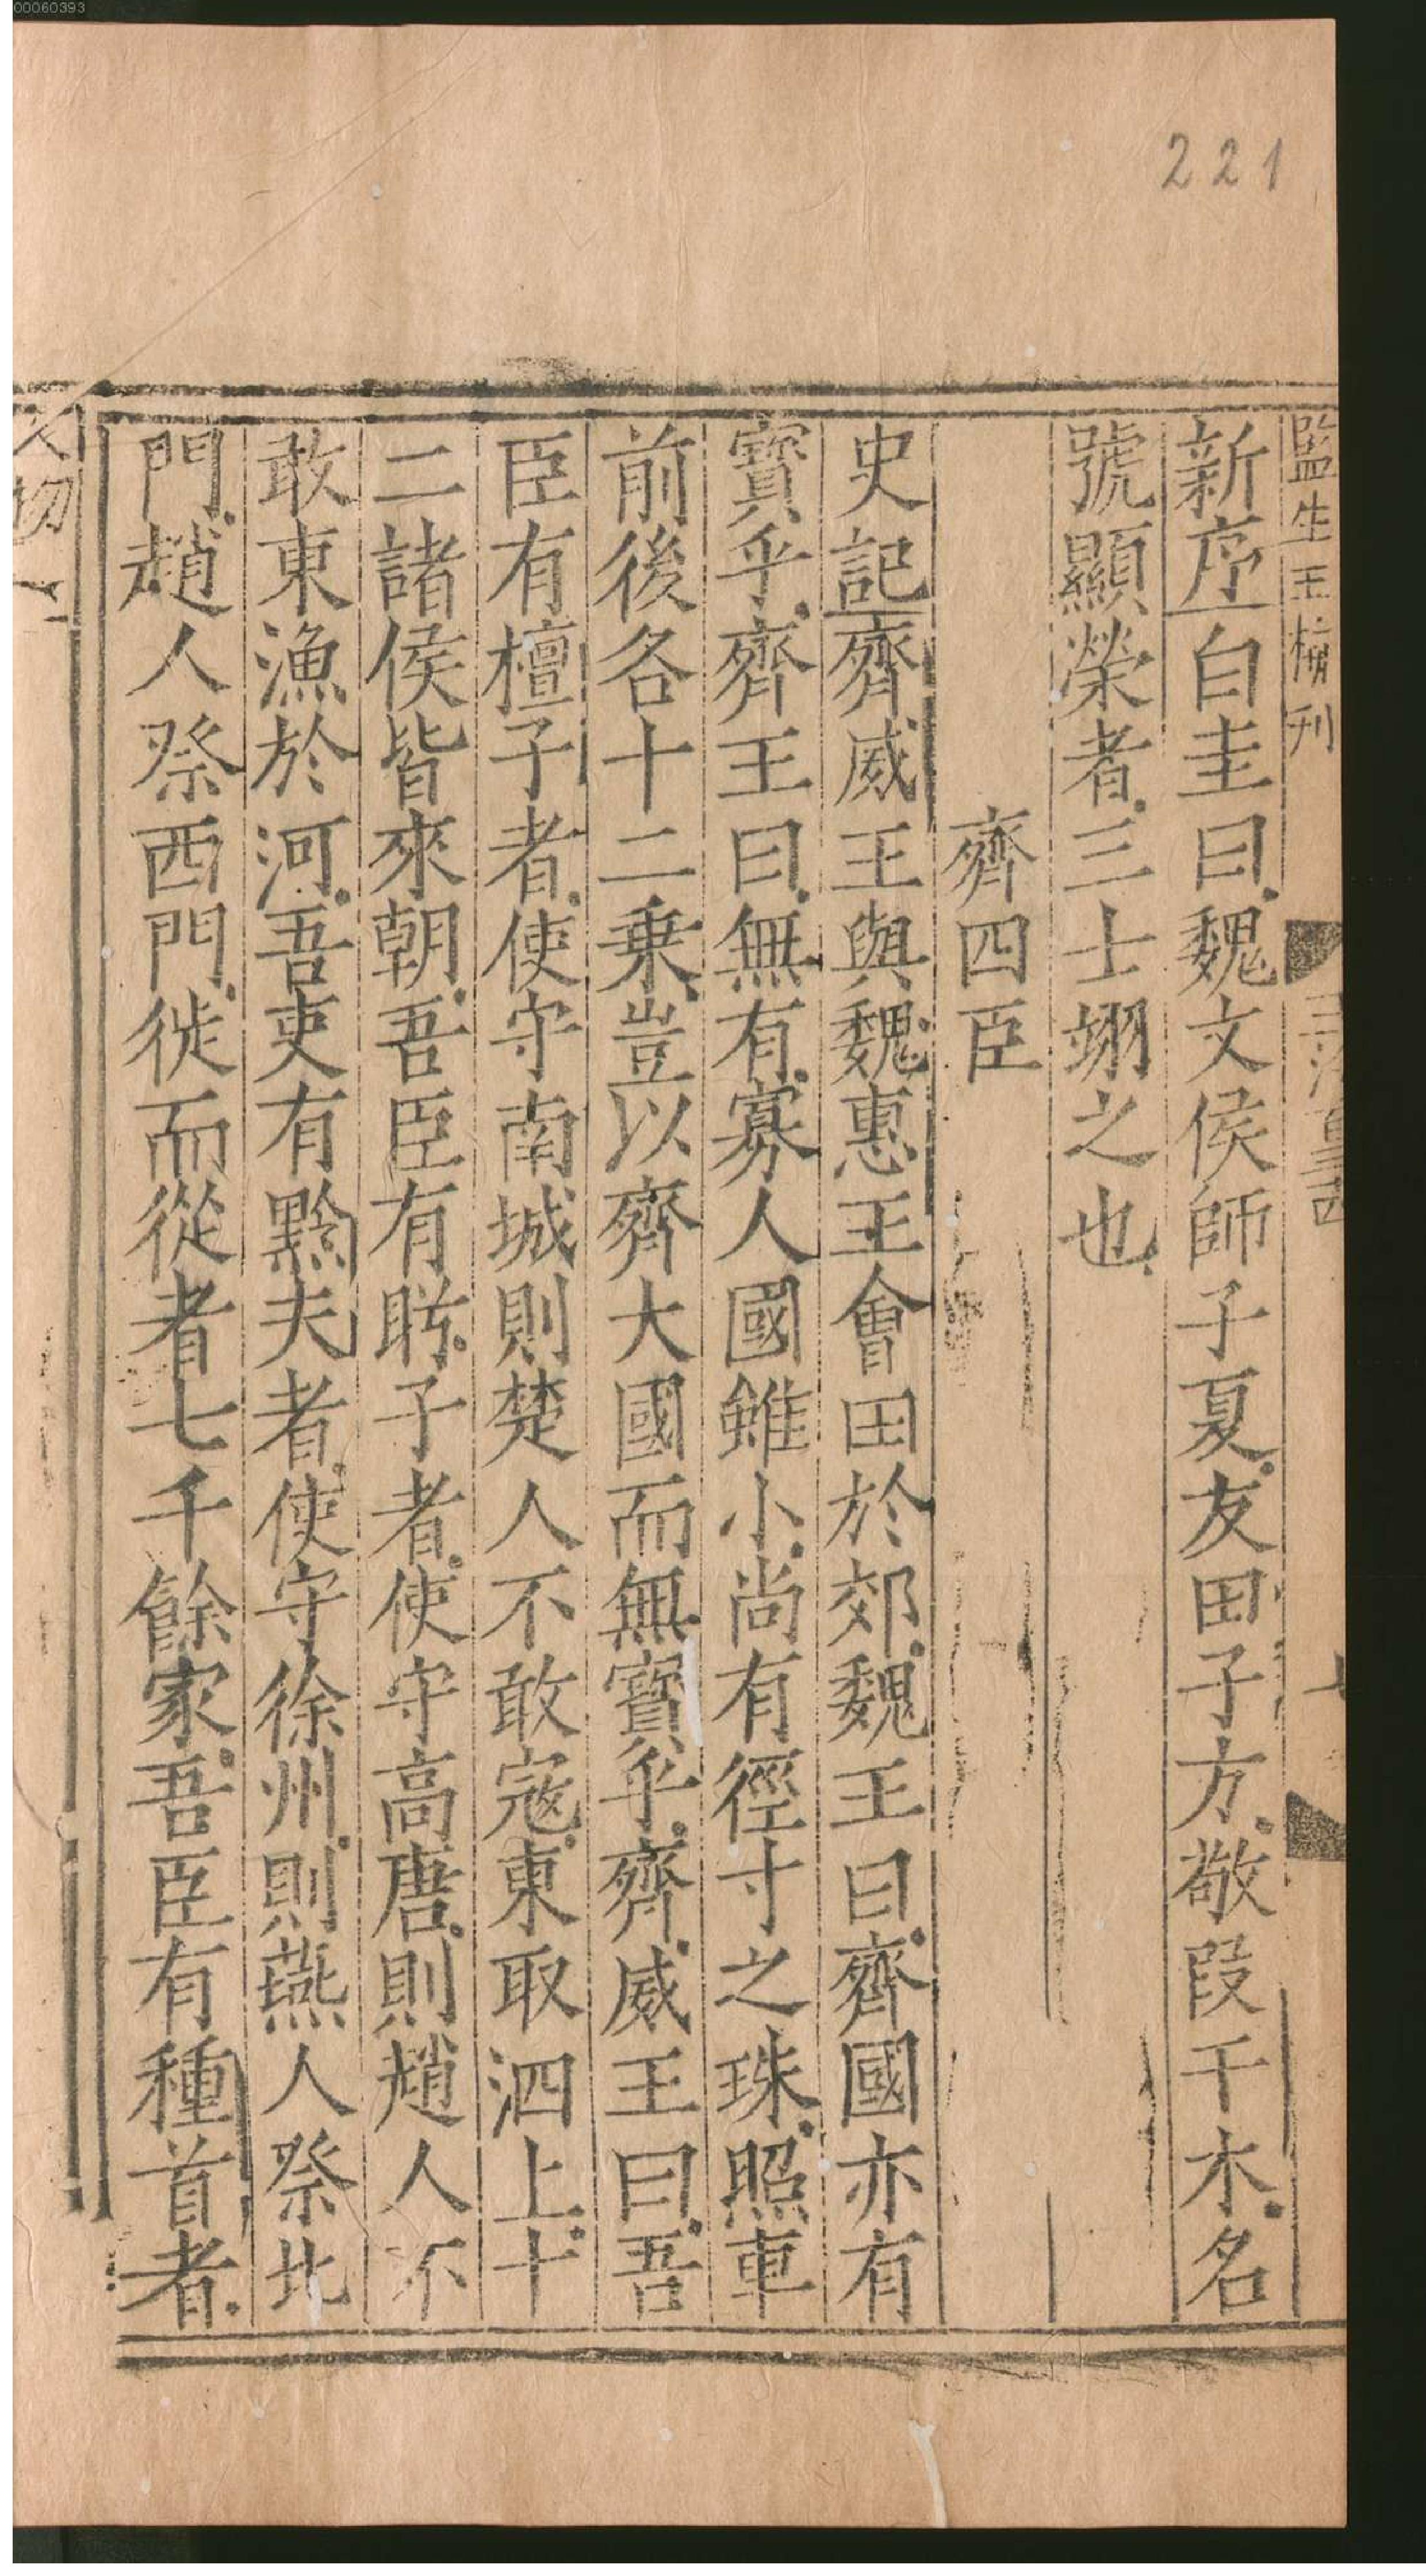 00060393
221
監生王楠刊
新序自圭曰魏文侯師子夏友田子方敬段干木名
號顯榮者三士翊之也
齊四臣
史記齊威王與魏惠王會田於郊魏王曰齊國亦有
寳乎齊王曰無有寡人國雖小尚有徑寸之珠照車
前後各十二乗豈以齊大國而無寳乎齊威王曰吾
臣有檀子者使守南城則楚人不敢寇東取泗上十
二諸侯皆來朝吾臣有盼子者使守高唐則趙人不
敢東漁於河吾吏有黔夫者使守徐州則燕人祭北
門趙人祭西門徙而從者七千餘家吾臣有種首者
人物一